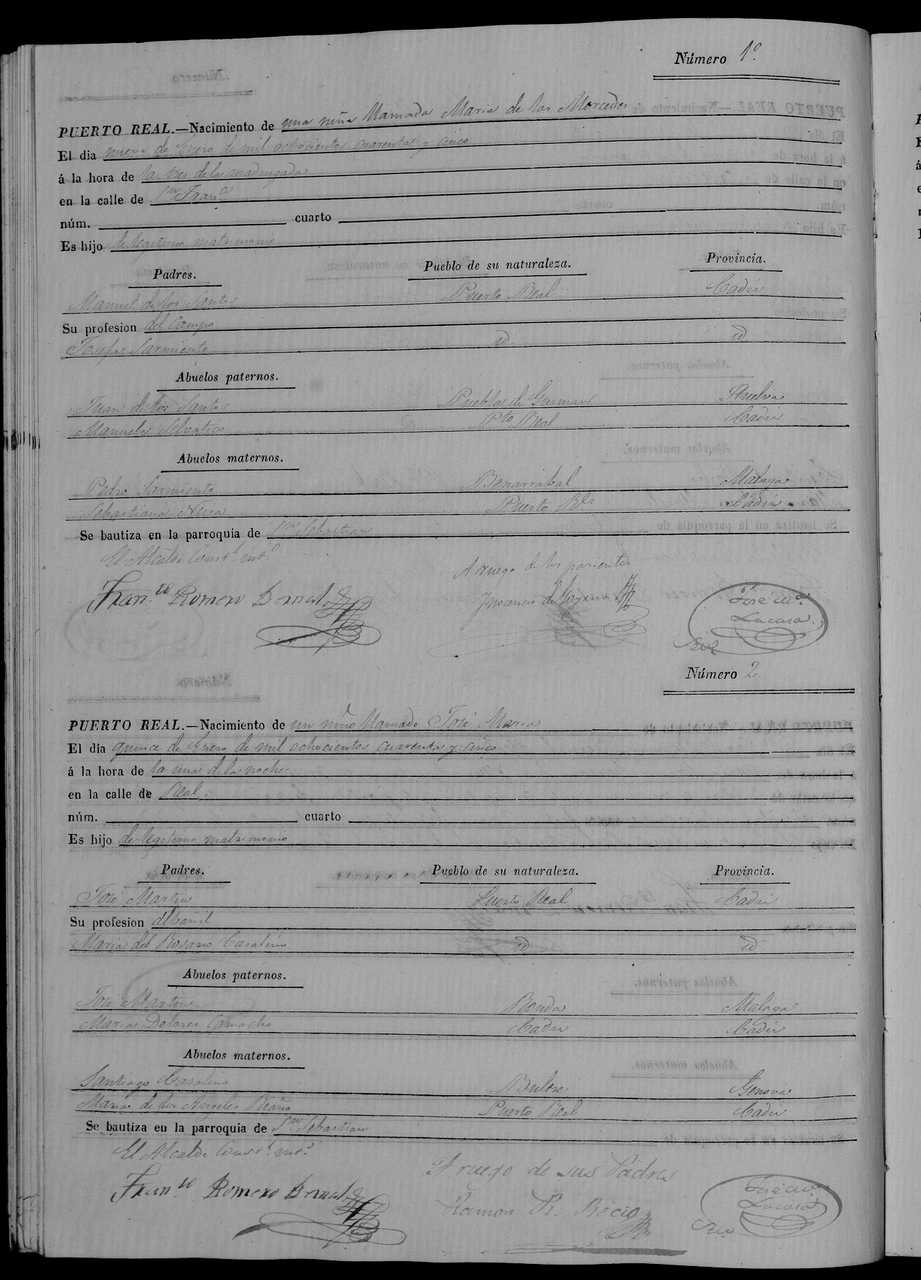 Número 1º
PUERTO REAL.—Nacimiento de una niña llamada Maria de las Mercedes
El dia nueve de Enero de mil ochocientos cuarenta y cinco
á la hora de las tres de la madrugada
en la calle de Sn Franco
núm. cuarto
Es hijo de legitimo matrimonio
Padres. Pueblo de su naturaleza. Provincia.
Manuel de los Santos Puerto Real Cadiz
Su profesion del campo
Josefa Sarmiento id id
Abuelos paternos.
Juan de los Santos Puebla de Guzman Huelva
Manuela Pto Real Cadiz
Abuelos maternos.
Pedro Sarmiento Benarrabal Malaga
Sebastiana Puerto Rl Cadiz
Se bautiza en la parroquia de Sn Sebastian
El Alcalde Const.l
A ruego de los parientes
Franco Romero Bernal
José Ma
Lacasa
Srio
Número 2
PUERTO REAL.—Nacimiento de un niño llamado José Maria
El día quince de Enero de mil ochocientos cuarenta y cinco
á la hora de la una de la noche
en la calle de Real
núm. cuarto
Es hijo de legitimo matrimonio
Padres. Pueblo de su naturaleza. Provincia.
José Martin Puerto Real Cadiz
Su profesion
Maria del Rosario id id
Abuelos paternos.
José Ronda Malaga
Maria Dolores Camacho Cadiz Cadiz
Abuelos maternos.
Santiago Genova
Maria de los Puerto Real Cadiz
Se bautiza en la parroquia de Sn Sebastian
El Alcalde Const.l
A ruego de sus Padres
Franco Romero Bernal
Ramon R.
José Ma
Lacasa
Srio